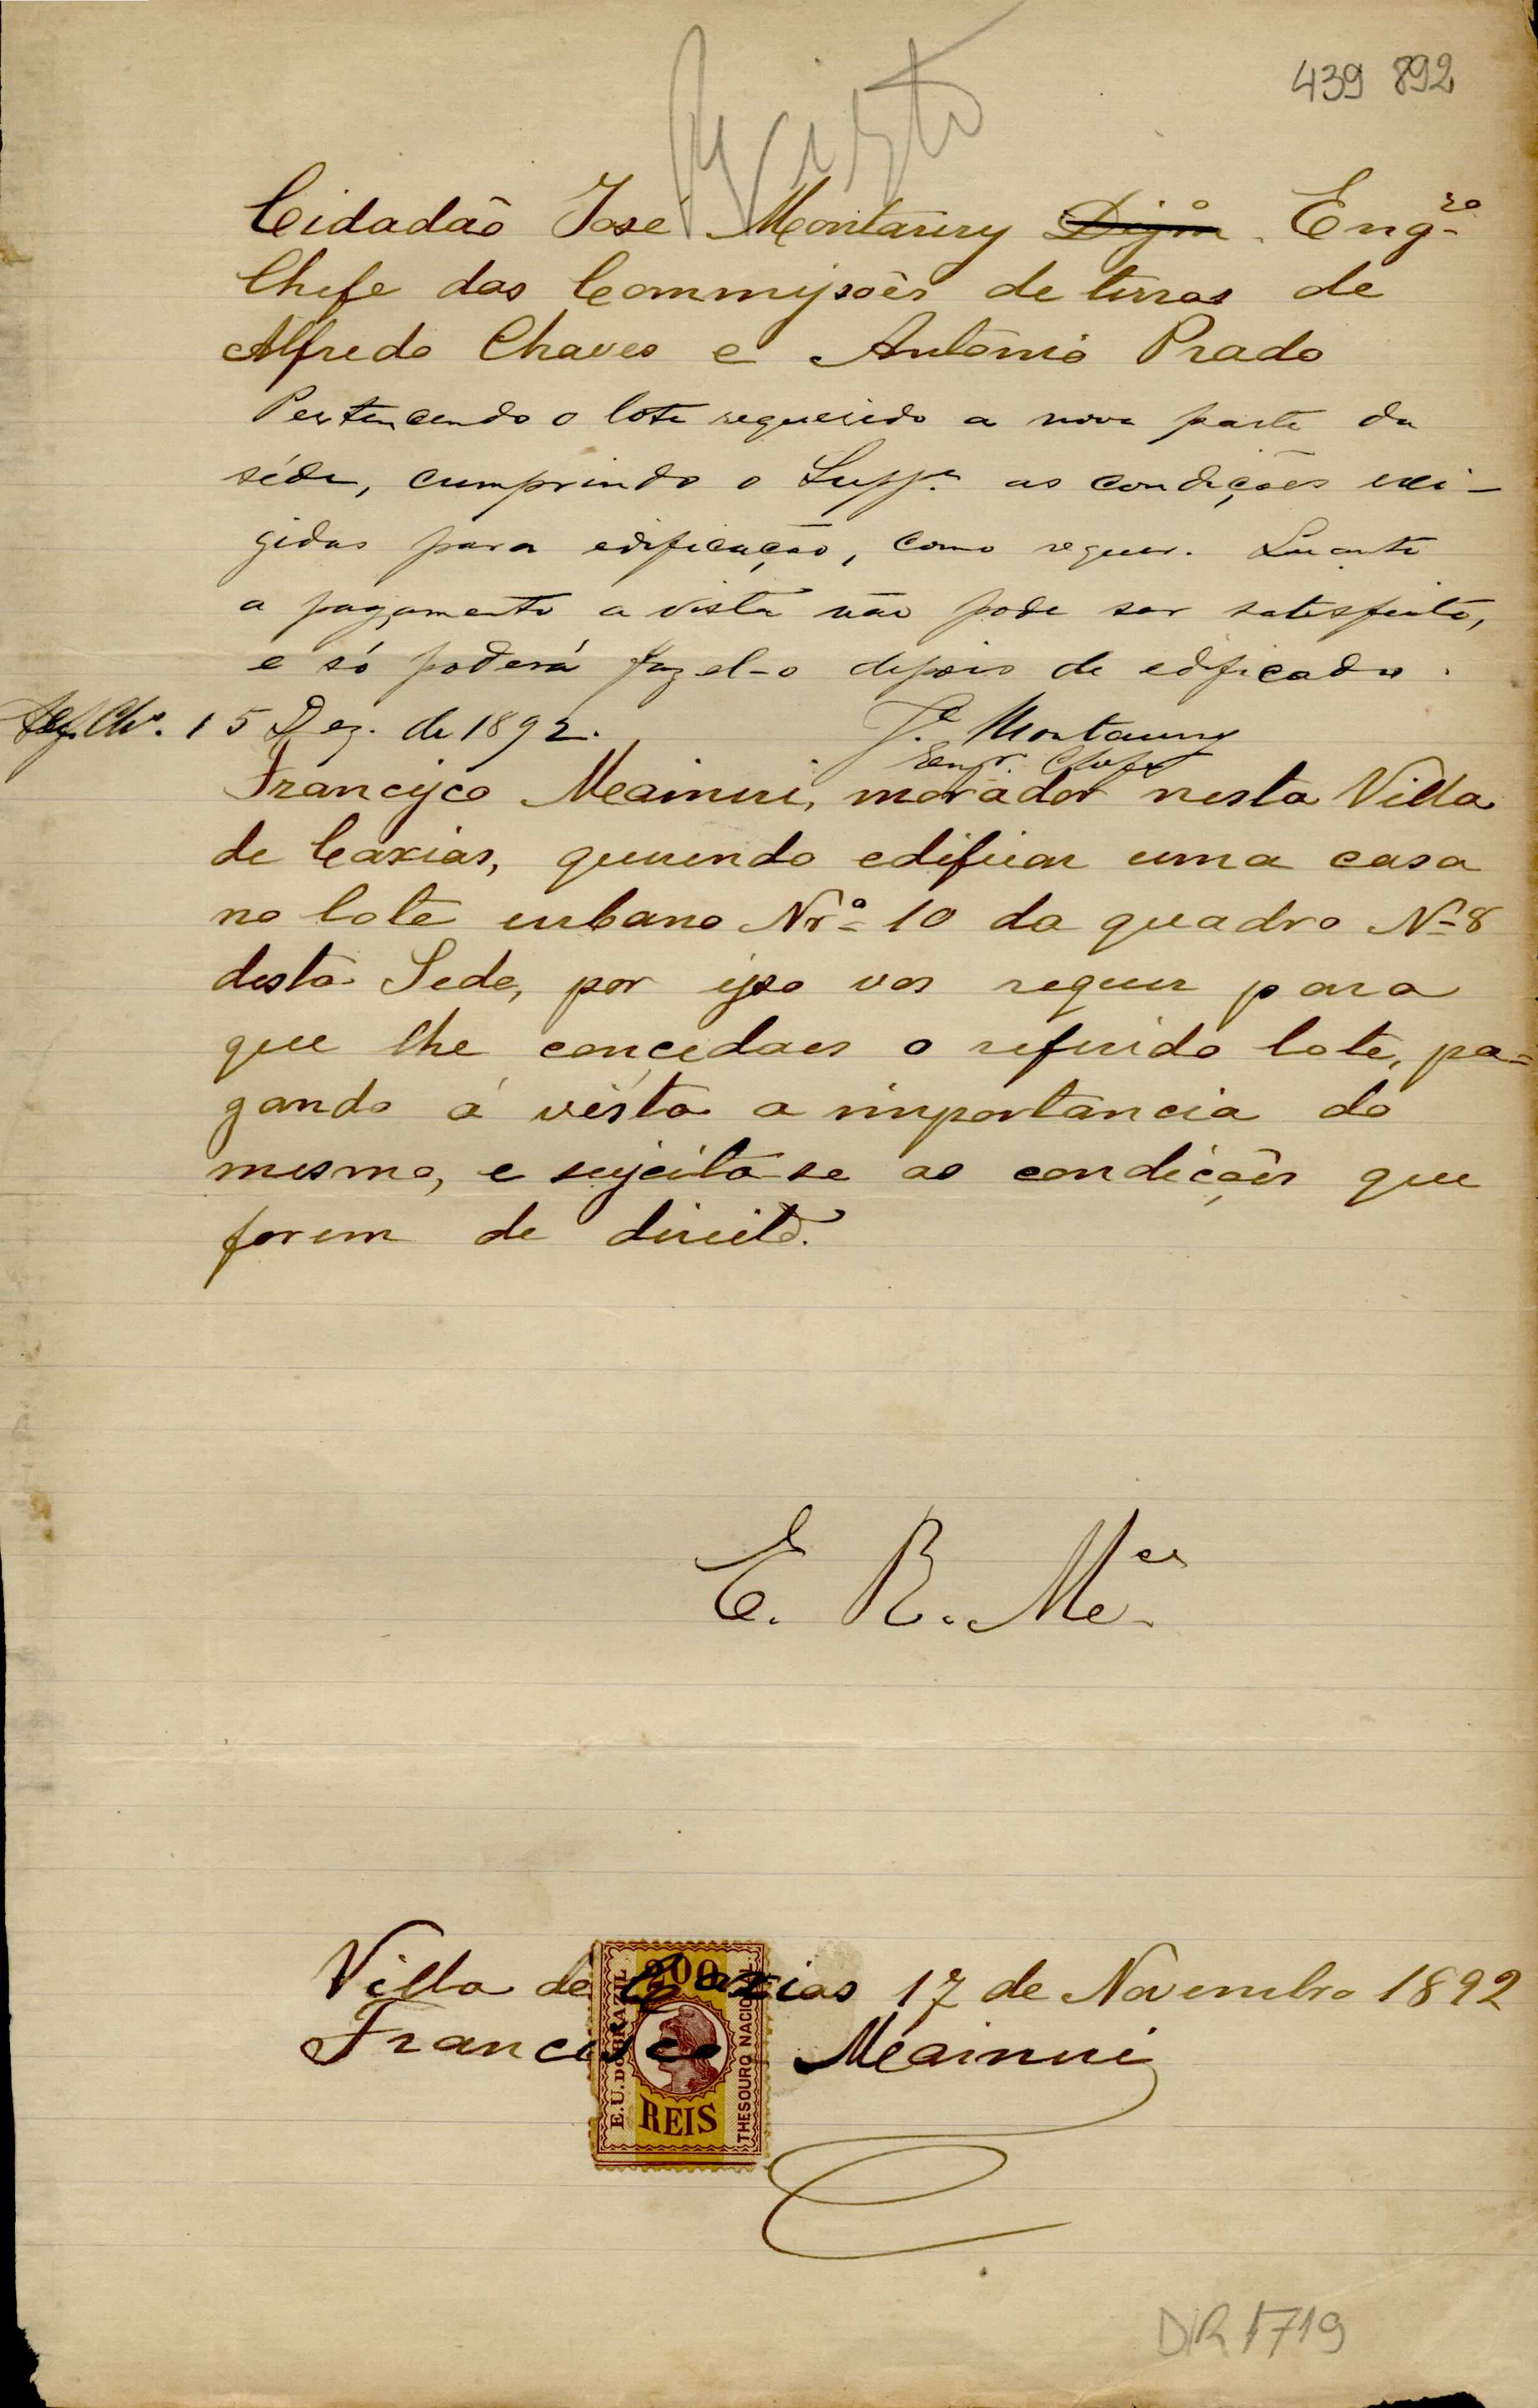 439 892
Visto
Cidadão José Montaury Digmº. Engrº
Chefe das Commissões de terras de
Alfredo Chaves e Antonio Prado
Pertencendo o lote requerido a nova parte da
séde, cumprindo o Suppe. as condições exi-
gidas para edificação, como requer. Quanto
a pagamento a vista não pode ser satisfeito,
e só poderá fazel-o depois de edificado.
Alf. Chs. 15 Dez. de 1892.
J. Montaury
Engr. Chefe
Francisco Meainini, morador nesta Villa
de Caxias, querendo edificar uma casa
no lote urbano Nrº 10 da quadro Nº 8
desta Sede, por isso vos requer para
que lhe concedaes o referido lote, pa=
gando á vista a importancia do
mesmo, e sujeita-se as condicções que
forem de direito.
E. R. Mce
Villa de Caxias 17 de Novembro 1892
Francisco Meainini
200
E.U. DO BRAZIL
THESOURO NACIONAL
REIS
DIR 1719